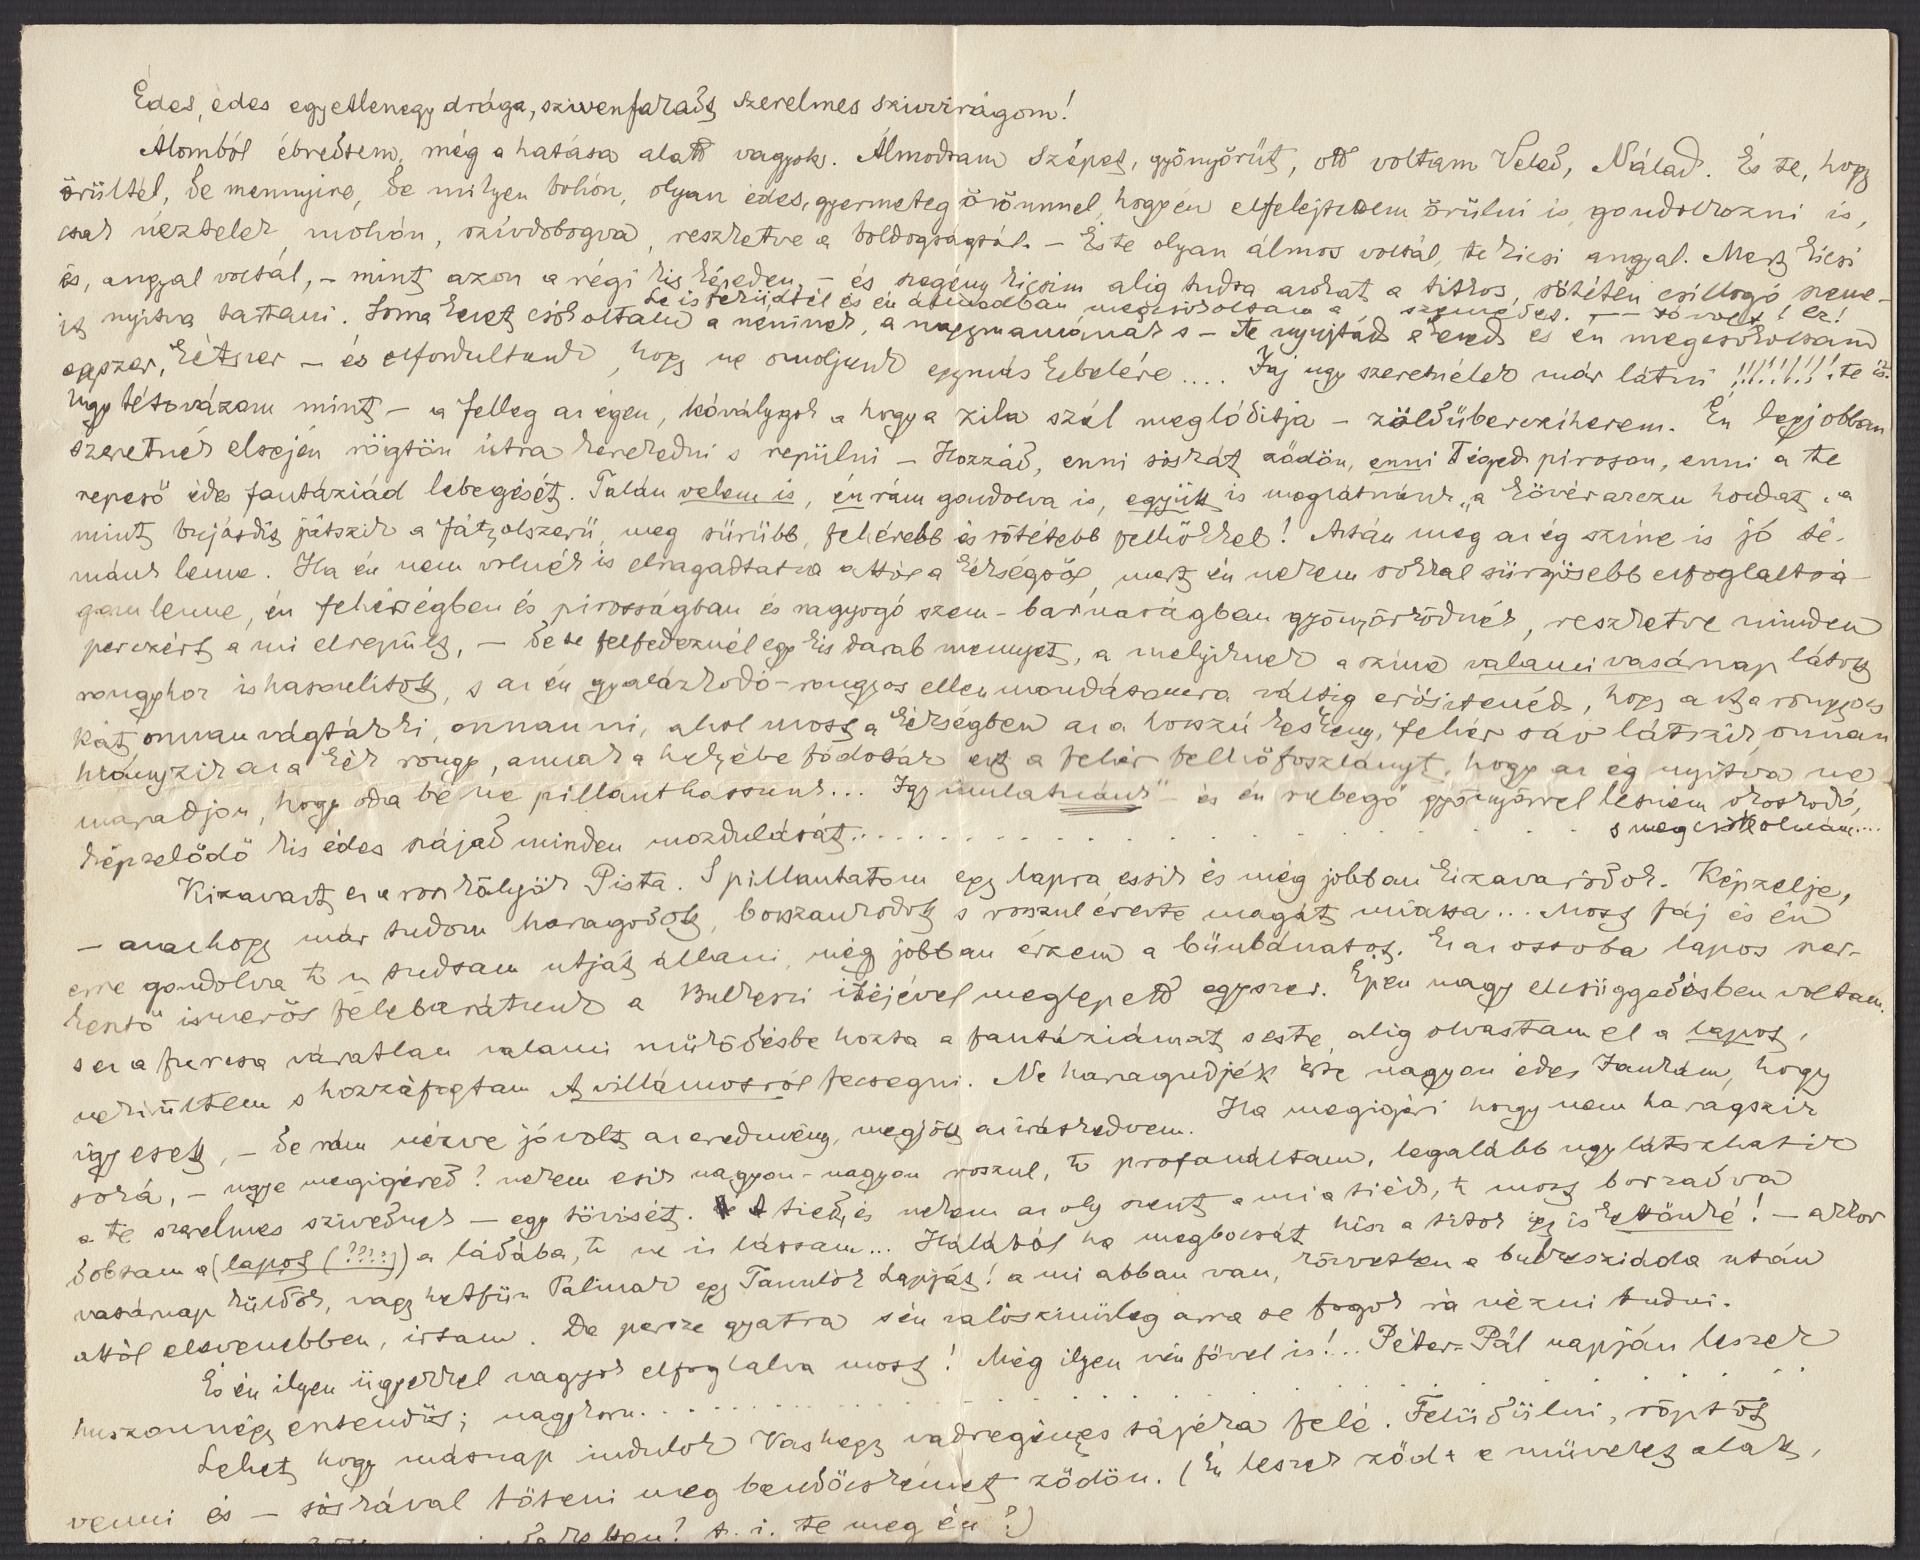 Édes, édes egyetlenegy drága, szivenfakadt szerelmes szivvirágom!
Álomból ébredtem, még a hatása alatt vagyok. Álmodtam szépet, gyönyörüt, ott voltam Veled, Nálad. És te, hogy
örültél, de mennyire, de milyen bohón, olyan édes, gyermeteg örömmel, hogy én elfelejtettem örülni is, gondolkozni is,
csak néztelek, mohón, szívdobogva, reszketve a boldogságtól. — És te olyan álmos voltál, te kicsi angyal. Mert kicsi
is, angyal voltál, – mint azon a régi kis képeden, – és szegény kicsim alig tudta azokat a titkos, sötéten csillogó szeme-
Le is feküdtél és én álmodban megcsókoltam a szemedet. — — Jó volt! ez!
it nyitva tartani. Soma kezet csókoltam a néninek, a nagymamának s – te nyujtád a kezed és én megcsókoltam
egyszer, kétszer — és elfordultunk, hogy ne omoljunk egymás keblére .... Jaj ugy szeretnélek már látni !!!!!!! te is.
Ugy tétovázom mint – a felleg az égen, kóválygok a hogy a zila szél meglóditja – zöldüberzíherem. Én legjobban
szeretnék elsején rögtön útra kerekedni s repülni – Hozzád, enni sóskát zödön, enni Téged piroson, enni a te
repeső édes fantáziád lebegését. Talán velem is, én rám gondolva is, együtt is meglátnánk „a kövér arczu holdat, a
mint bujósdit játszik a fátyolszerü, meg sürübb, fehérebb és sötétebb felhőkkel! Aztán meg az ég színe is jó té-
mánk lenne. Ha én nem volnék is elragadtatva attól a kékségtől, mert én nekem sokkal sürgősebb elfoglaltsá-
gom lenne, én fehérségben és pirosságban és ragyogó szem-barnaságban gyönyörködnék, reszketve minden
perczért a mi elrepült, – de te felfedeznél egy kis darab mennyet, a melyiknek a színe valami vasárnap látott
rongyhoz is hasonlitott, s az én gyalázkodó-rongyos ellenmondásomra váltig erősitenéd, hogy azt a rongyocs
kát onnan vágták ki, onnan ni, ahol most a kékségben az a hosszú keskeny, fehér sáv látszik, onnan
hiányzik az a kék rongy, annak a helyébe tódották ezt a fehér felhőfoszlányt, hogy az ég nyitva ne
maradjon, hogy oda bé ne pillanthassunk ... Igy „mulatnánk” – és én rebegő gyönyörrel lesném okoskodó,
képzelődő kis édes szájad minden mozdulását. . . . . . . . . . s megcsókolnám....
Kizavart ez a rossz kölyök Pista. S pillantatom egy lapra esik és még jobban kizavarodok. Képzelje,
– azaz hogy már tudom haragodott, bosszankodott s rosszul érezte magát miatta ... Most fáj és én
erre gondolva tudtam utját állani, még jobban érzem a bűnbánatot. Ez az ostoba lapos szer-
kesztő ismerős felebarátunk a Bukreszi idejével meglepett egyszer. Épen nagy elcsüggedésben voltam,
s ez a furcsa váratlan valami müködésbe hozta a fantáziámat s este, alig olvastam el a lapot,
nekiültem s hozzáfogtam A villámosról fecsegni. Ne haragudjék érte nagyon édes Jankám, hogy
így esett, – de rám nézve jó volt az eredmény, megjött az iráskedvem. Ha megigéri hogy nem haragszik
soká, – ugye megigéred? nekem esik nagyon-nagyon roszul, profanáltam, legalább ugy látszhatik
a te szerelmes szivednek — egy tövisét. A tied, és nekem az oly szent a mi a tiéd, most borzadva
dobtam a (lapot (????)) a ládába, ne is lássam... Hálából ha megbocsát, hisz a titok így is kettőnké! – akkor
vasárnap küldök, vagy hetfün Palinak egy Tanulók Lapját! a mi abban van, közvetlen a bukresziáda után
attól elevenebben, irtam. De persze gyatra s én valószinüleg arra se fogok rá nézni tudni.
És én ilyen ügyekkel vagyok elfoglalva most! Még ilyen vén fővel is!... Péter-Pál napján leszek
huszonnégy esztendős; nagykoru. . . . . . . . . .
Lehet, hogy másnap indulok Vashegy vadregényes tájéka felé. Felüdülni, röptöt
venni és – sóskával töteni meg bendőcskémet zödön. (Én leszek zöd e müvelet alatt,
t. i. te meg én?)